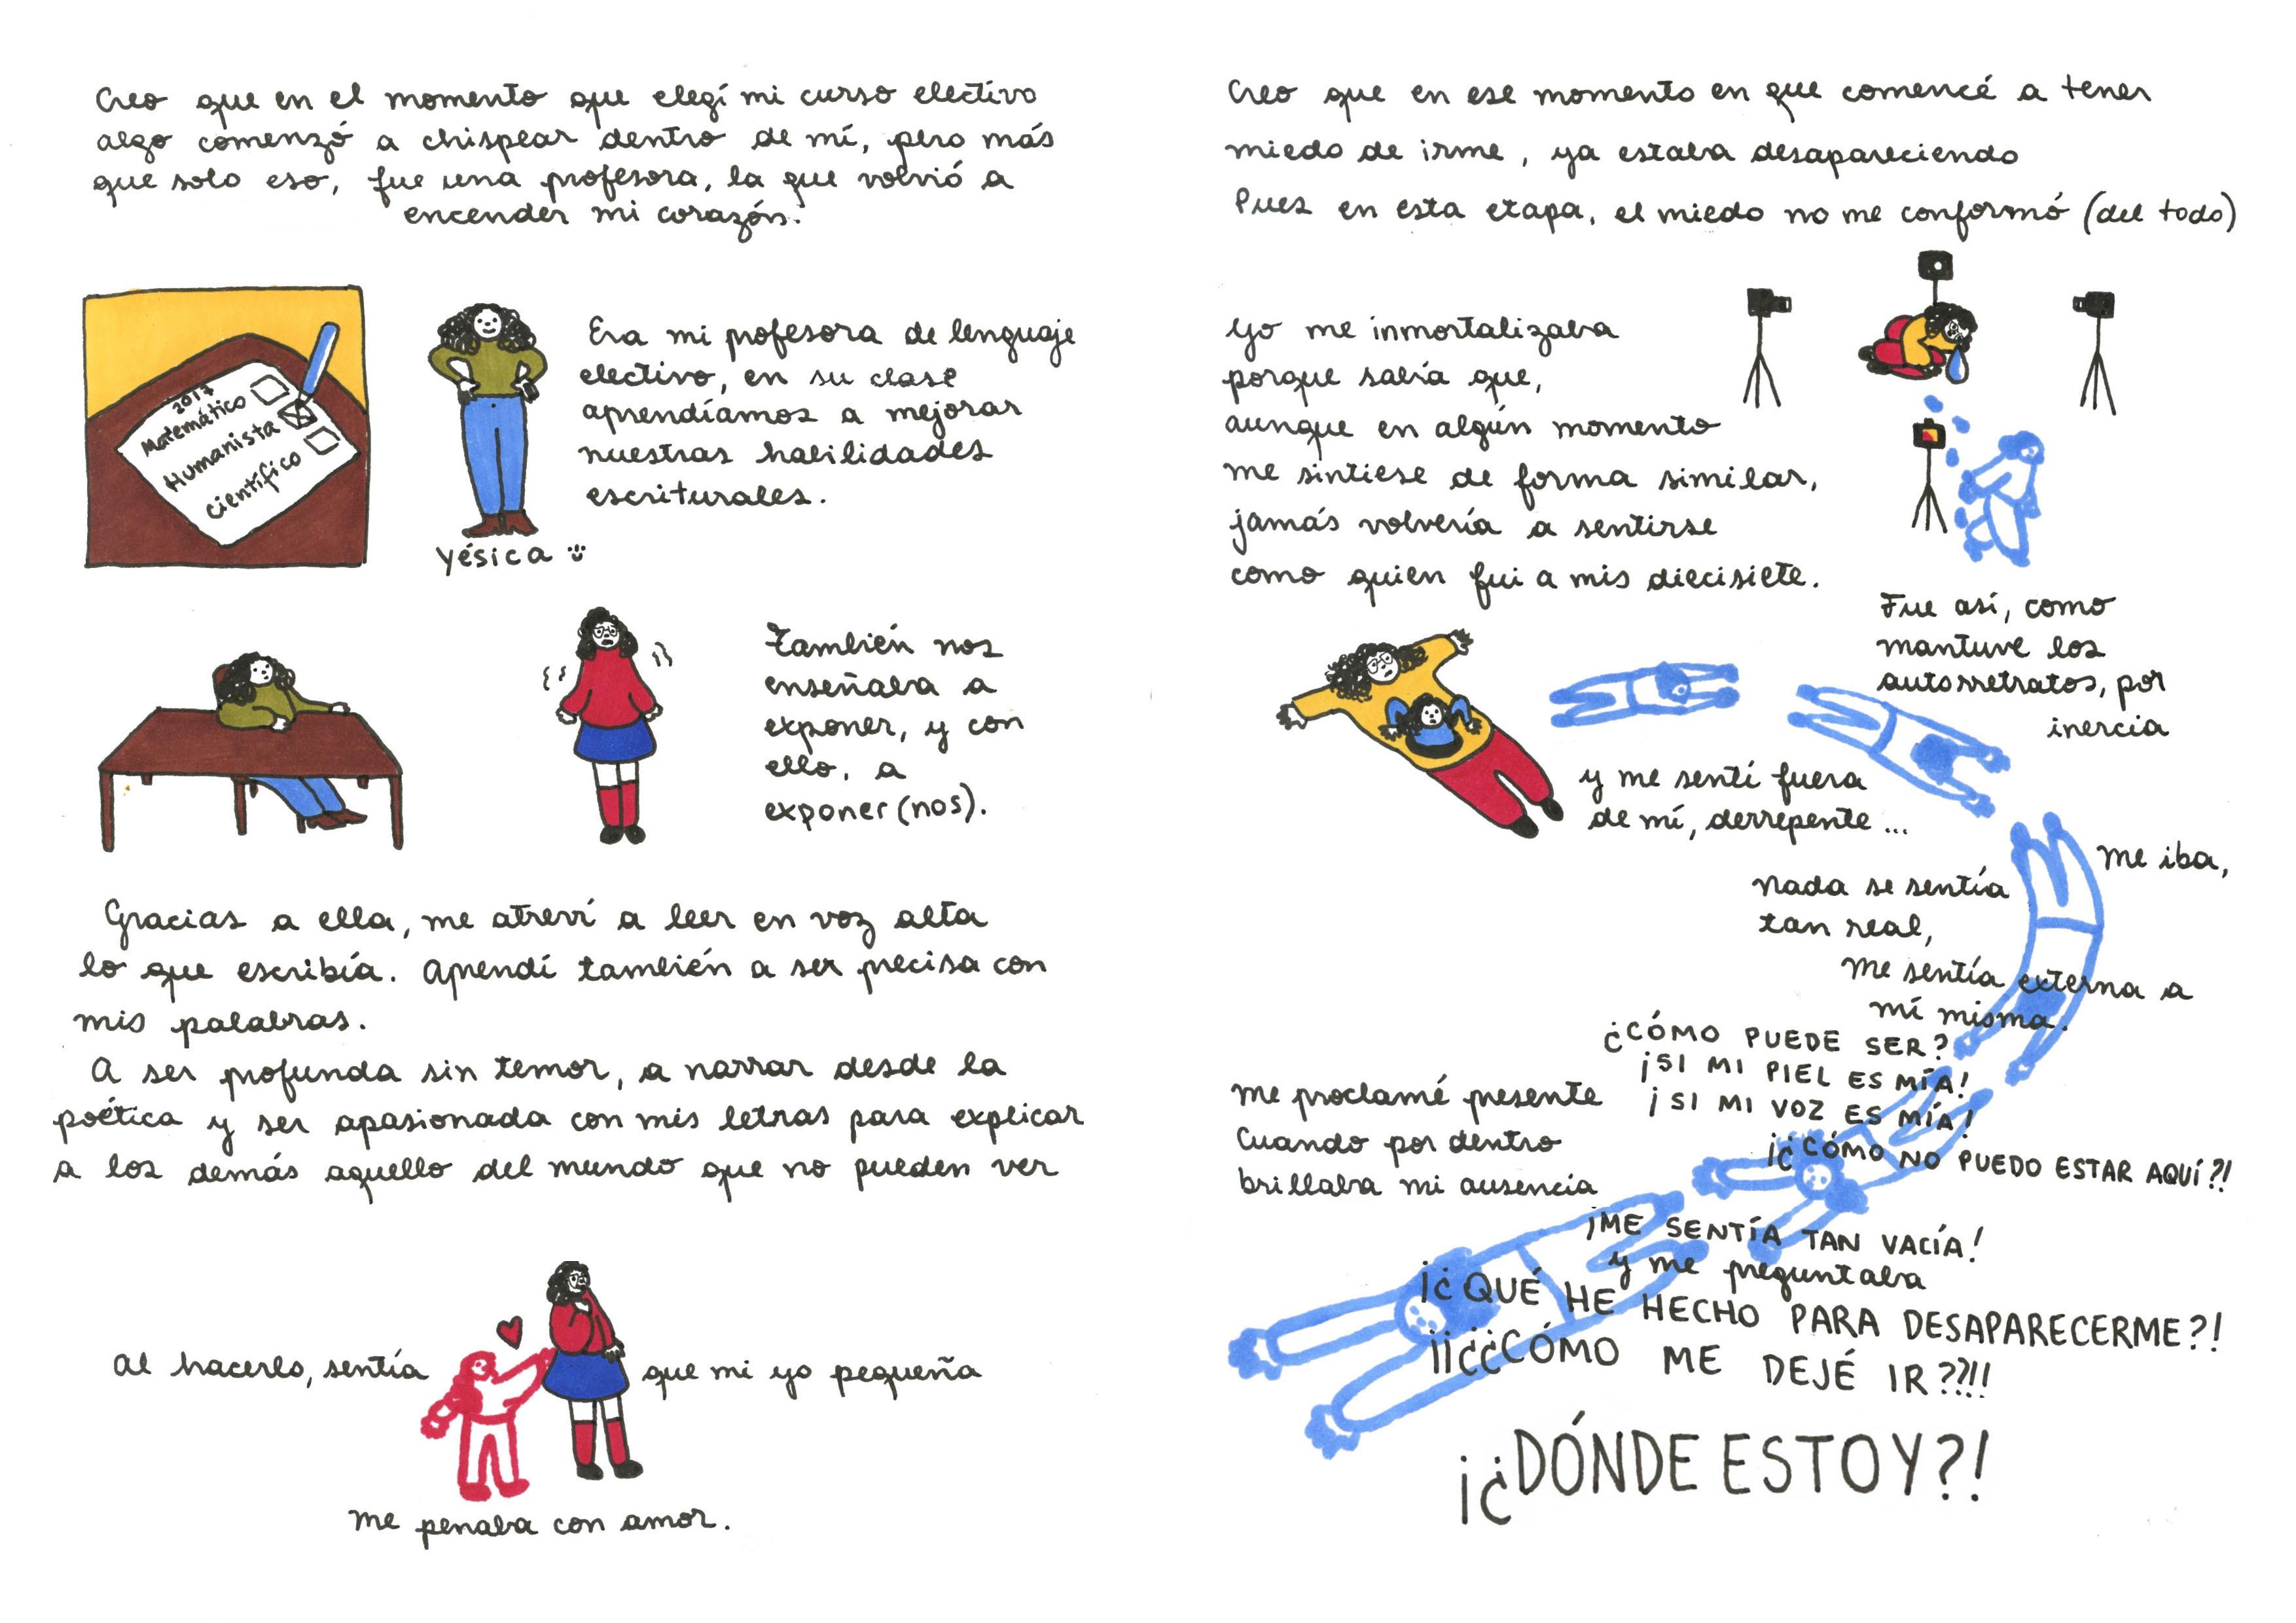 Creo que en el momento que elegí mi curso electivo
algo comenzó a chispear dentro de mí, pero más
que solo eso, fue una profesora, la que volvió a
encender mi corazón.
2017
Matemático
Humanista
científico
Yésica
Era mi profesora de lenguaje
electivo, en su clase
aprendíamos a mejorar
nuestras habilidades
escriturales.
También nos
enseñaba a
exponer, y con
ello, a
exponer (nos).
Gracias a ella, me atreví a leer en voz alta
lo que escribía. Aprendí también a ser precisa con
mis palabras.
A ser profunda sin temor, a narrar desde la
poética y ser apasionada con mis letras para explicar
a los demás aquello del mundo que no pueden ver
Al hacerlo, sentía que mi yo pequeña
me penaba con amor.
Creo que en ese momento en que comencé a tener
miedo de irme, ya estaba desapareciendo
Pues en esta etapa, el miedo no me conformó (del todo)
Yo me inmortalizaba
porque sabía que,
aunque en algún momento
me sintiese de forma similar,
jamás volvería a sentirse
como quien fui a mis diecisiete.
Fue así, como
mantuve los
autorretratos, por
inercia
y me sentí fuera
de mí, derrepente...
me iba,
nada se sentía
tan real,
me sentía externa a
mí misma.
¿CÓMO PUEDE SER?
¡SI MI PIEL ES MÍA!
¡SI MI VOZ ES MÍA!
¡¿CÓMO NO PUEDO ESTAR AQUÍ?!
me proclamé presente
Cuando por dentro
brillaba mi ausencia
¡ME SENTÍA TAN VACÍA!
y me preguntaba
¡¿QUÉ HE HECHO PARA DESAPARECERME?!
¡¡¿¿¿CÓMO ME DEJÉ IR??!!
¡¿DÓNDE ESTOY?!